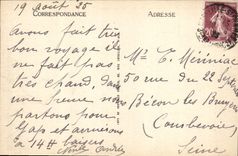 19 août 25
CORRESPONDANCE
ADRESSE
Avons fait très
bon voyage il
ne fait pas
très chaud, dans
une heure nous
partons pour
Gap et arrivons
à 14H baisers
Mr E. Ménissac
50 rue du 22 Septembre
Bécon les Bruyères
(Courbevoie)
Seine